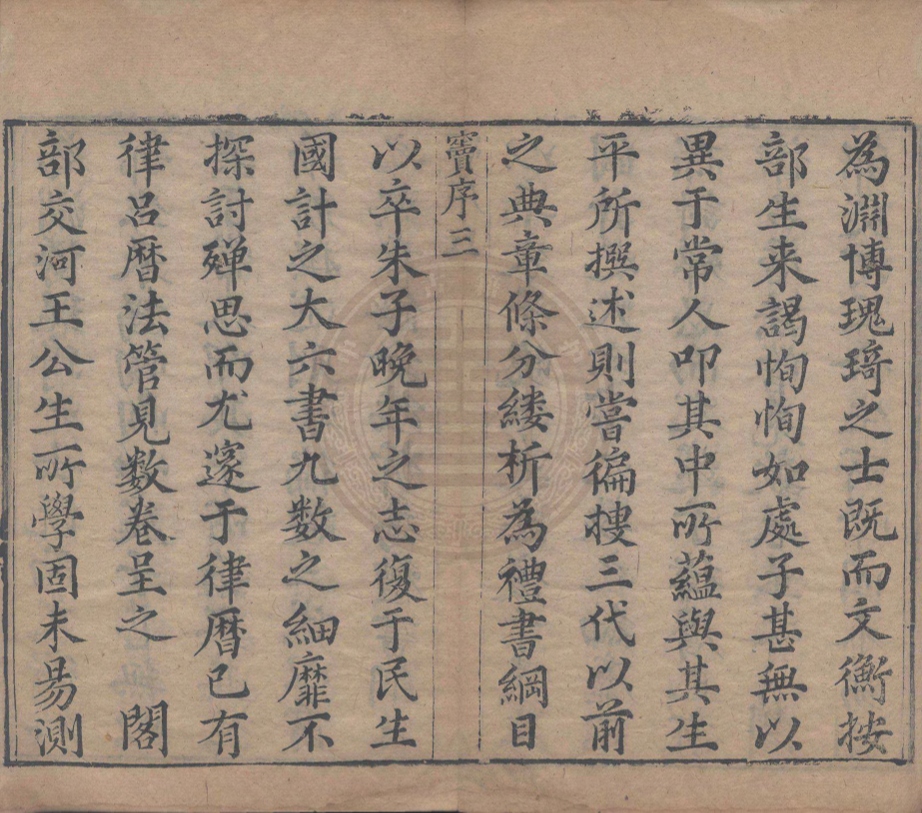 為淵博瑰琦之士既而文衡按
部生来謁恂恂如處子甚無以
異于常人叩其中所蘊與其生
平所撰述則嘗徧搜三代以前
之典章條分縷析為禮書綱目
竇序 三
以卒朱子晚年之志復于民生
國計之大六書九數之細靡不
探討殫思而尤邃于律曆已有
律呂曆法管見数卷呈之 閣
部交河王公生所學固未易測